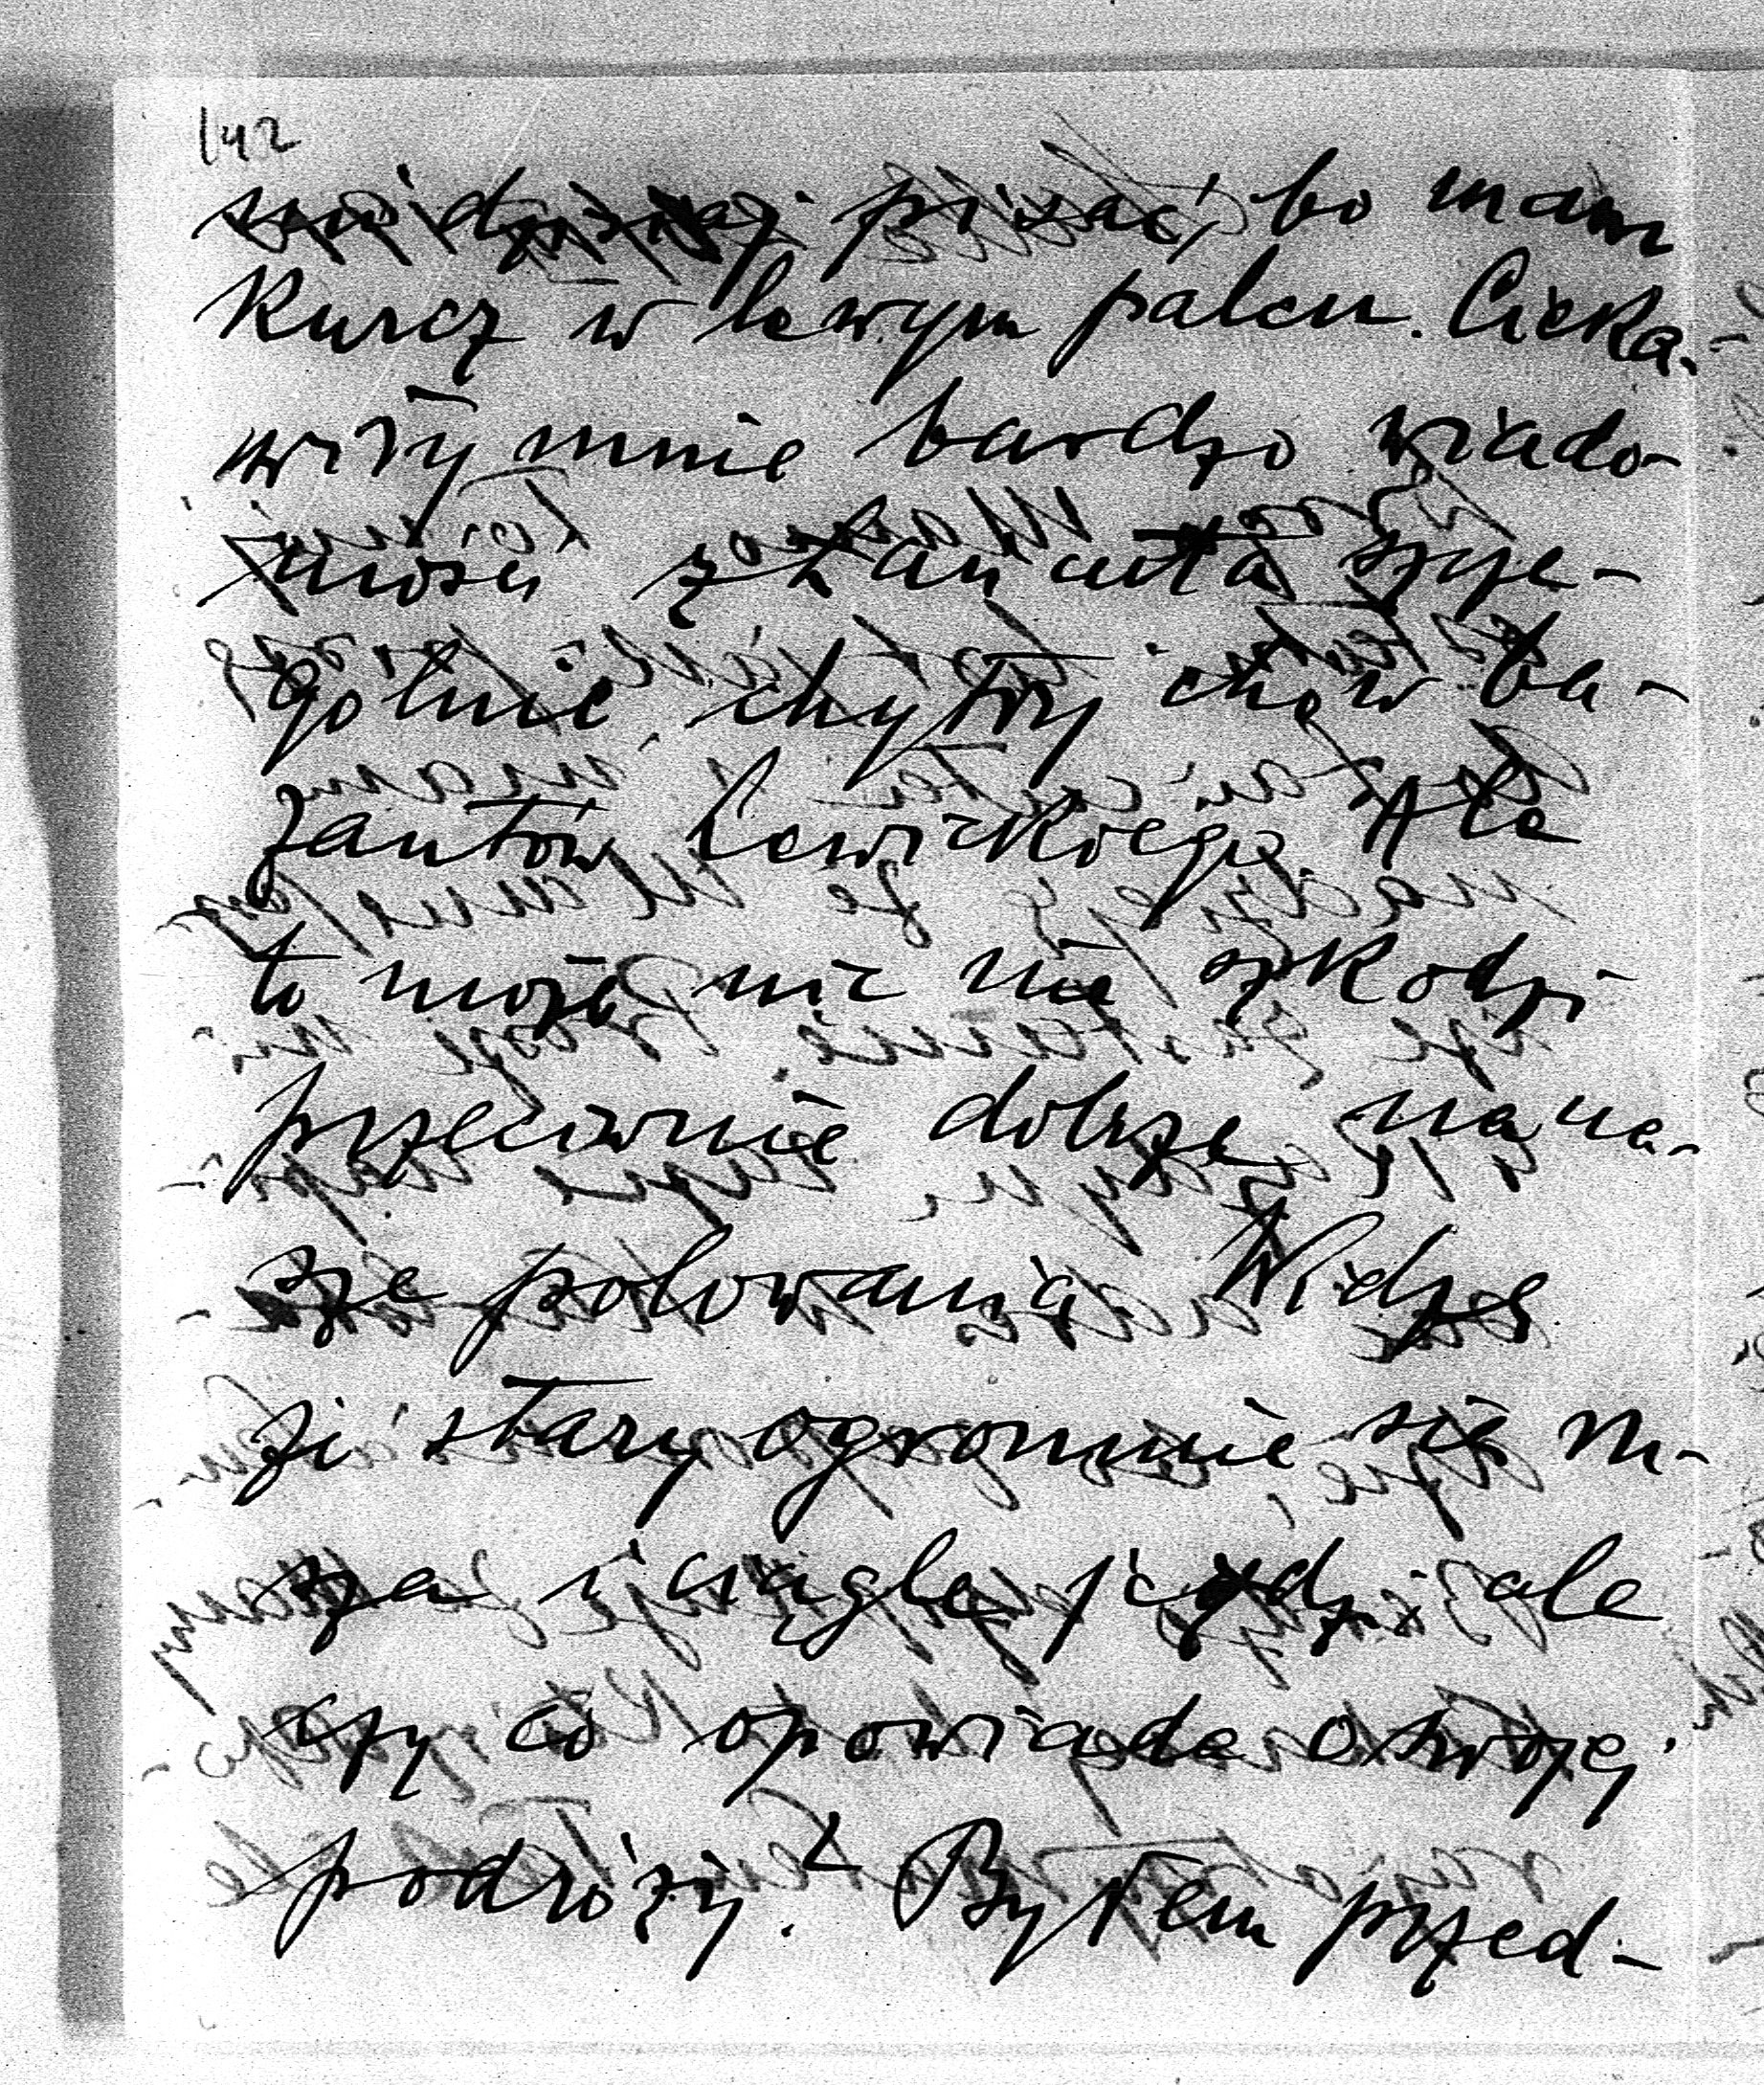 142
mi dzisiaj pisać, bo mam
Kurcz w lewym palcu. Cieka-
wiły mnie bardzo wiado-
mości z Łańcuta szcze-
gólnie chytry chów ba-
żantów Lewickiego. Ale
to może nic nie szkodzi
przeciwnie dobrze na na-
sze polowania Widzę
że stary ogromnie się ru-
sza i ciągle jeździ ale
czy co opowiada o swojej
podróży? Byłem przed-